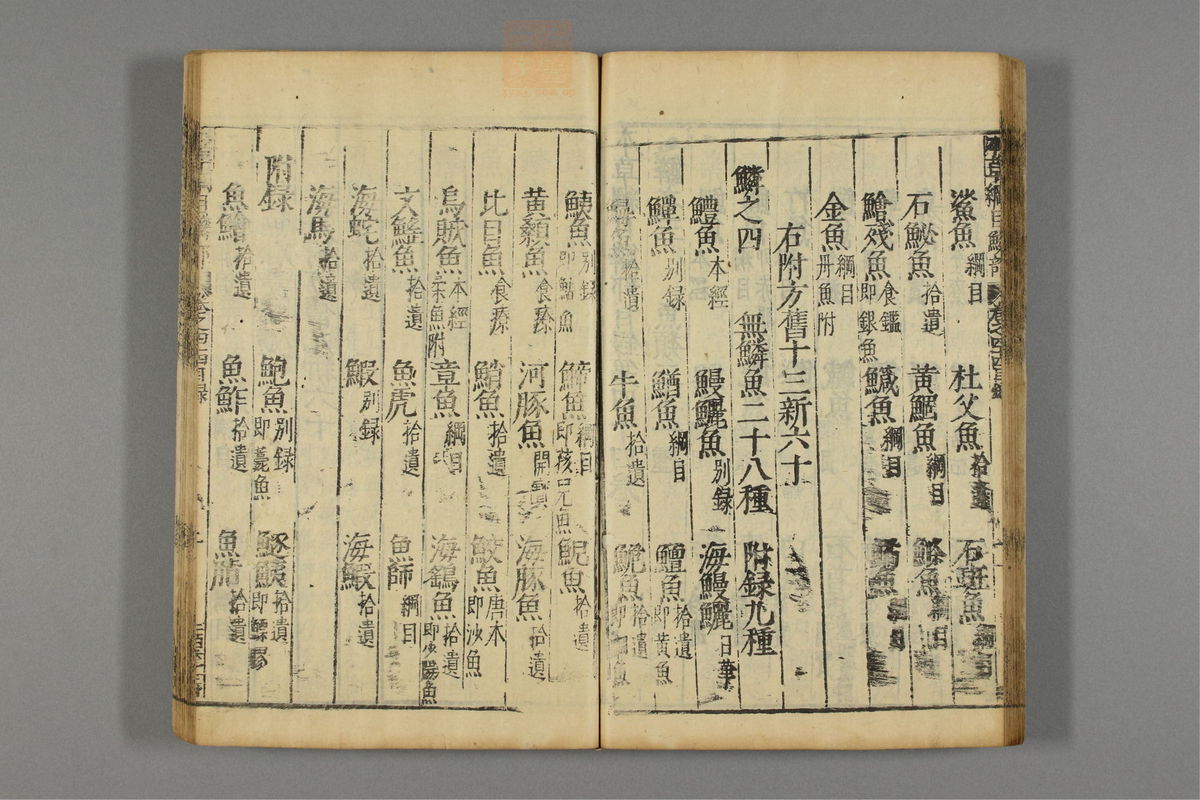 鯊魚 綱目 杜父魚 拾遺 石斑魚 綱目
石鮅魚 拾遺 黃鯝魚 綱目 鰷魚 綱目
鱠殘魚 食鑑 即銀魚 鱵魚 綱目 鱊魚
金魚 綱目 丹魚附
右附方舊十三新六十
鱗之四 無鱗魚二十八種 附録九種
鱧魚 本經 鰻鱺魚 別録 海鰻鱺 日華
鱓魚 別録 鰌魚 綱目 鱣魚 拾遺 即黃魚
鱘魚 拾遺 牛魚 拾遺 鮠魚 拾遺
鮧魚 別録 即鮎魚 䱱魚 綱目 即孩兒魚 鯢魚 拾遺
黃顙魚 食療 河豚魚 開寶 海豚魚 拾遺
比目魚 食療 鮹魚 拾遺 鮫魚 唐本 即沙魚
烏賊魚 本經 柔魚附 章魚 綱目 海鷂魚 拾遺 即少陽魚
文鰩魚 拾遺 魚虎 拾遺 魚師 綱目
海蛇 拾遺 鰕 別録 海鰕 拾遺
海馬 拾遺
附録 鮑魚 別録 即薧魚 鱁鮧 拾遺 即鰾
魚鱠 拾遺 魚鮓 拾遺 魚脂 拾遺